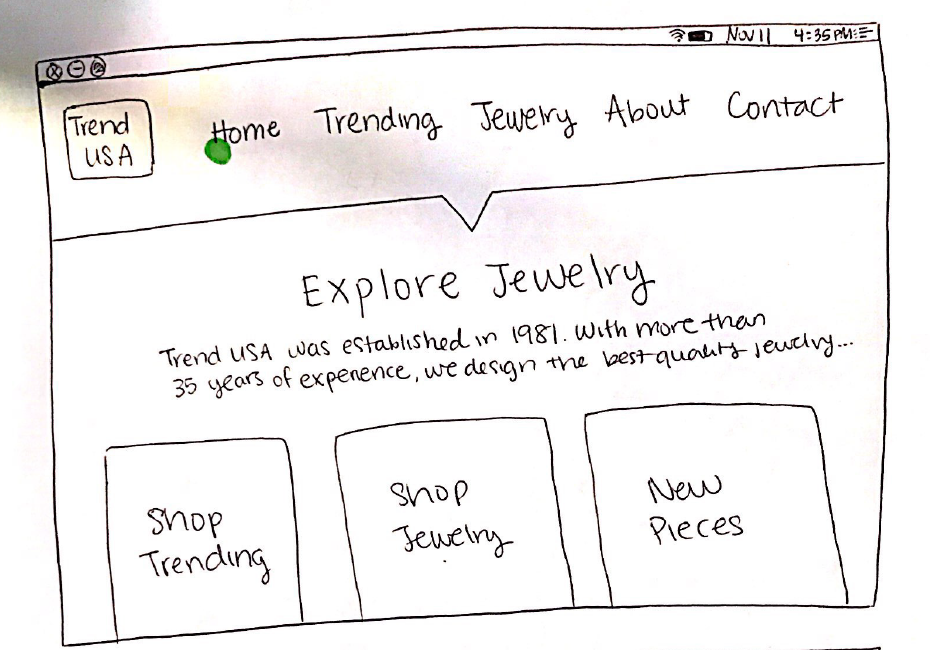 Nov 11 4:35 PM
Trend
USA
Home Trending Jewelry About Contact
Explore Jewelry
Trend USA was established in 1981. With more than
35 years of experience, we design the best quality jewelry...
Shop
Trending
Shop
Jewelry
New
Pieces